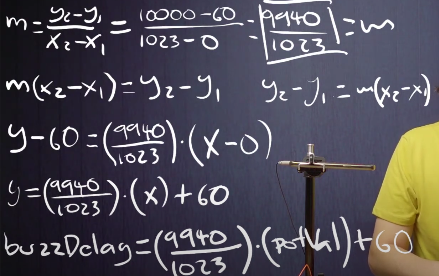 m = y₂-y₁/x₂-x₁ = 10000-60/1023-0 = 9940/1023 = m
m(x₂-x₁) = y₂-y₁ y₂-y₁ = m(x₂-x₁)
y-60 = (9940/1023)·(x-0)
y = (9940/1023)·(x)+60
buzzDelay = (9940/1023)·(potVal)+60